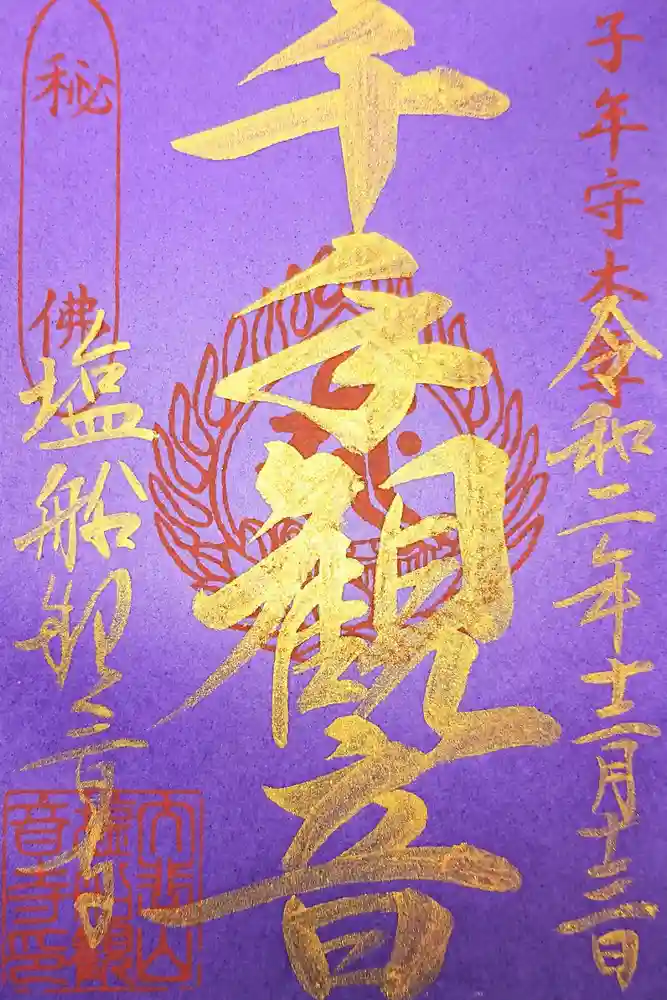 子年守本尊
令和二年十一月十三日
千手観音
秘佛
塩船観音寺
大悲山
塩船観
音寺印